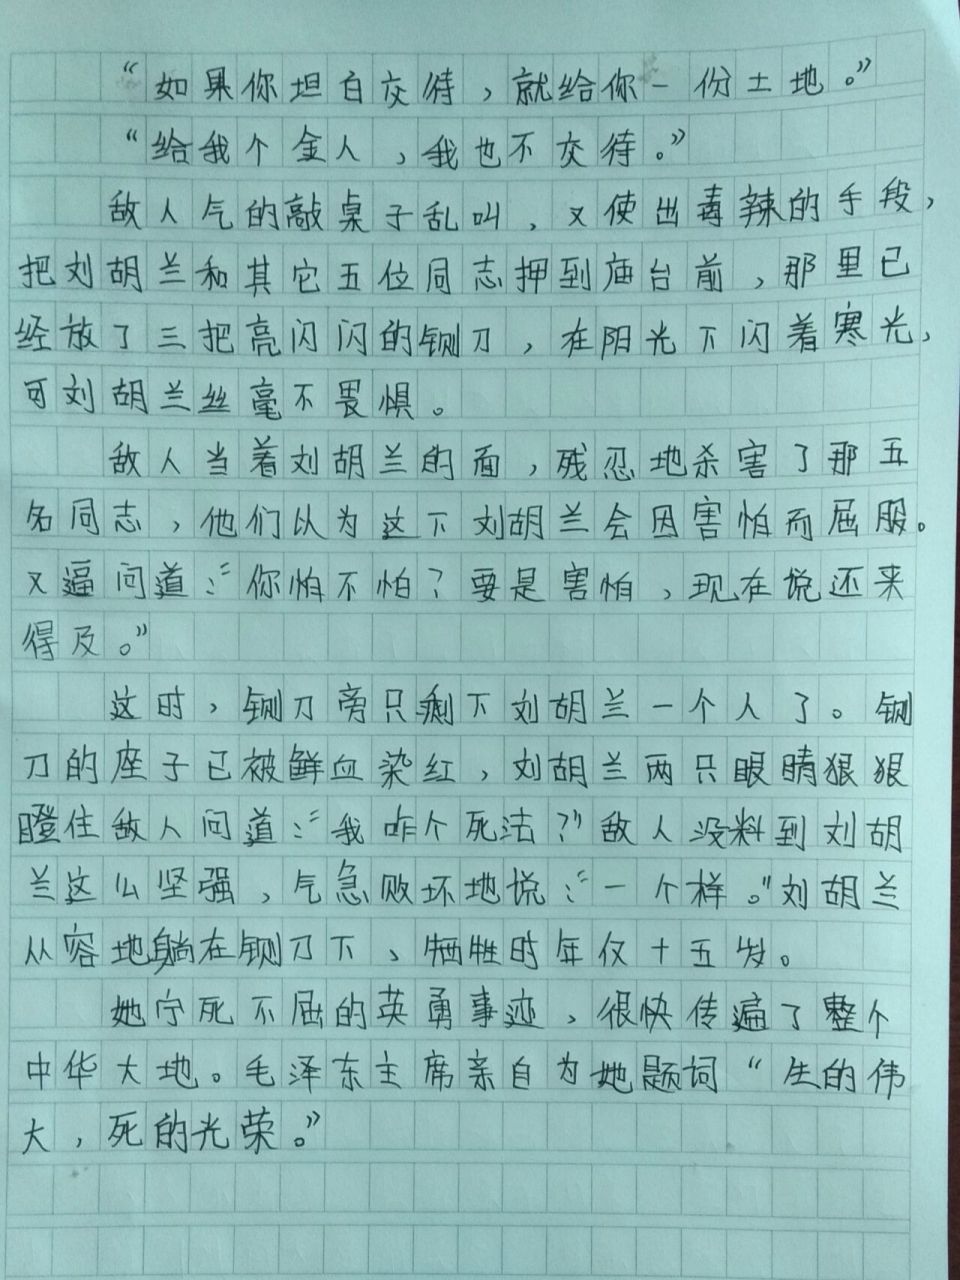 “如果你坦白交待，就给你一份土地。”
“给我个金人，我也不交待。”
敌人气的敲桌子乱叫，又使出毒辣的手段，
把刘胡兰和其它五位同志押到庙台前，那里已
经放了三把亮闪闪的铡刀，在阳光下闪着寒光，
可刘胡兰丝毫不畏惧。
敌人当着刘胡兰的面，残忍地杀害了那五
名同志，他们以为这下刘胡兰会因害怕而屈服。
又逼问道：“你怕不怕？要是害怕，现在说还来
得及。”
这时，铡刀旁只剩下刘胡兰一个人了。铡
刀的座子已被鲜血染红，刘胡兰两只眼睛狠狠
瞪住敌人问道：“我咋个死法？”敌人没料到刘胡
兰这么坚强，气急败坏地说：“一个样。”刘胡兰
从容地躺在铡刀下、牺牲时年仅十五岁。
她宁死不屈的英勇事迹，很快传遍了整个
中华大地。毛泽东主席亲自为她题词“生的伟
大，死的光荣。”